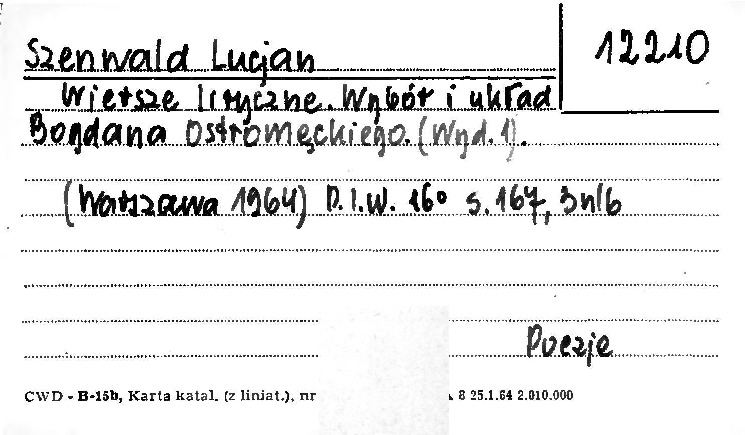 12210
Szenwald Lucjan
Wiersze liryczne. Wybór i układ
Bogdana Ostromęckiego. (Wyd. 1).
(Warszawa 1964) P.I.W. 16° s. 167, 3nlb
Poezje
CWD - B-15b, Karta katal. (z liniat.), nr 8 25.1.64 2.010.000